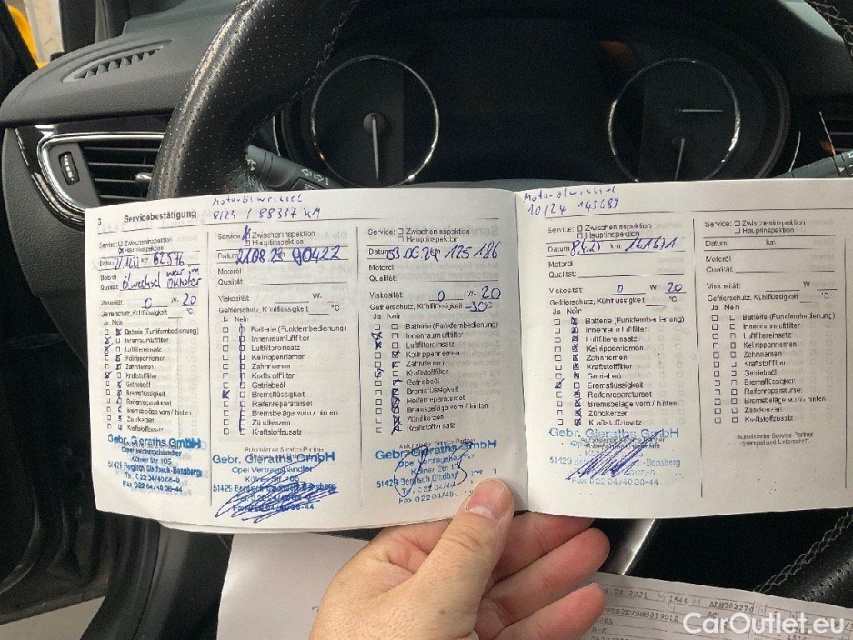 3 Servicebestätigung
Motorölwechsel
8/23 / 88317 KM
Service: Zwischeninspektion
Hauptinspektion
Datum km 62576
Motoröl
Ölwechsel war im
Viskosität 0 W. 20
Gefrierschutz, Kühlflüssigkeit °C
Ja Nein
Batterie (Funkfernbedienung)
Innenraumluftfilter
Luftfiltereinsatz
Keilrippenriemen
Zahnriemen
Kraftstofffilter
Getriebeöl
Bremsflüssigkeit
Reifenreparaturset
Bremsbeläge vorn / hinten
Zündkerzen
Kraftstoffzusatz
Gebr. Gieraths GmbH
Opel Vertragshändler
Kölner Str. 105
51429 Bergisch Gladbach-Bensberg
Tel. 02204/4008-0
Fax 02204/4008-44
Service: Zwischeninspektion
Hauptinspektion
Datum 21.08.23 90422
Motoröl
Qualität:
Viskosität W.
Gefrierschutz, Kühlflüssigkeit °C
Ja Nein
Batterie (Funkfernbedienung)
Innenraumluftfilter
Luftfiltereinsatz
Keilrippenriemen
Zahnriemen
Kraftstofffilter
Getriebeöl
Bremsflüssigkeit
Reifenreparaturset
Bremsbeläge vorn / hinten
Zündkerzen
Kraftstoffzusatz
Autorisierter Service Partner
Gebr. Gieraths GmbH
Opel Vertragshändler
Kölner Str. 105
51429 Bergisch Gladbach-Bensberg
Fax 02204/4008-44
Service: Zwischeninspektion
Hauptinspektion
Datum 06.24 125186
Motoröl
Qualität:
Viskosität 0 W. 20
Gefrierschutz, Kühlflüssigkeit -30 °C
Ja Nein
Batterie (Funkfernbedienung)
Innenraumluftfilter
Luftfiltereinsatz
Keilrippenriemen
Zahnriemen
Kraftstofffilter
Getriebeöl
Bremsflüssigkeit
Reifenreparaturset
Bremsbeläge vorn / hinten
Zündkerzen
Kraftstoffzusatz
Autorisierter Service Partner
Gebr. Gieraths GmbH
Opel
Kölner Str.
51429 Bergisch
Fax 02204/40
Motorölwechsel
10/24 145689
Service: Zwischeninspektion
Hauptinspektion
Datum km
Motoröl
Qualität:
Viskosität 0 W. 20
Gefrierschutz, Kühlflüssigkeit °C
Ja Nein
Batterie (Funkfernbedienung)
Innenraumluftfilter
Luftfiltereinsatz
Keilrippenriemen
Zahnriemen
Kraftstofffilter
Getriebeöl
Bremsflüssigkeit
Reifenreparaturset
Bremsbeläge vorn / hinten
Zündkerzen
Kraftstoffzusatz
Gebr. Gieraths GmbH
51429 -Bensberg
Fax 02204/40 -44
Service: Zwischeninspektion
Hauptinspektion
Datum km
Motoröl
Qualität:
Viskosität W.
Gefrierschutz, Kühlflüssigkeit °C
Ja Nein
Batterie (Funkfernbedienung)
Innenraumluftfilter
Luftfiltereinsatz
Keilrippenriemen
Zahnriemen
Kraftstofffilter
Getriebeöl
Bremsflüssigkeit
Reifenreparaturset
Bremsbeläge vorn / hinten
Zündkerzen
Kraftstoffzusatz
Autorisierter Service Partner
Stempel und Unterschrift
CarOutlet.eu